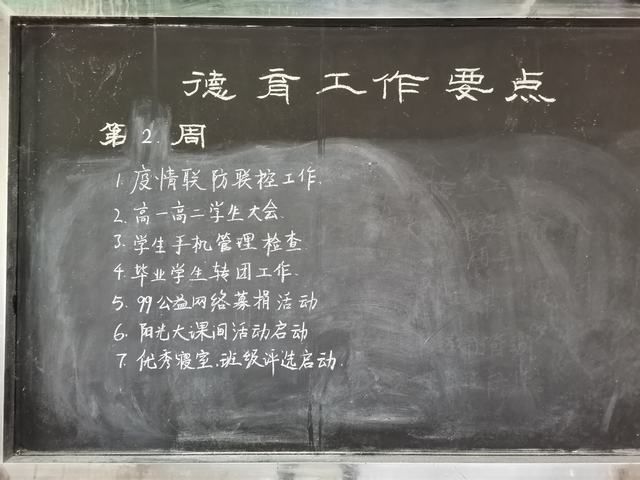 德育工作要点
第2.周
1.疫情联防联控工作.
2.高一高二学生大会.
3.学生手机管理检查
4.毕业学生转团工作.
5.99公益网络募捐活动
6.阳光大课间活动启动
7.优秀寝室.班级评选启动.